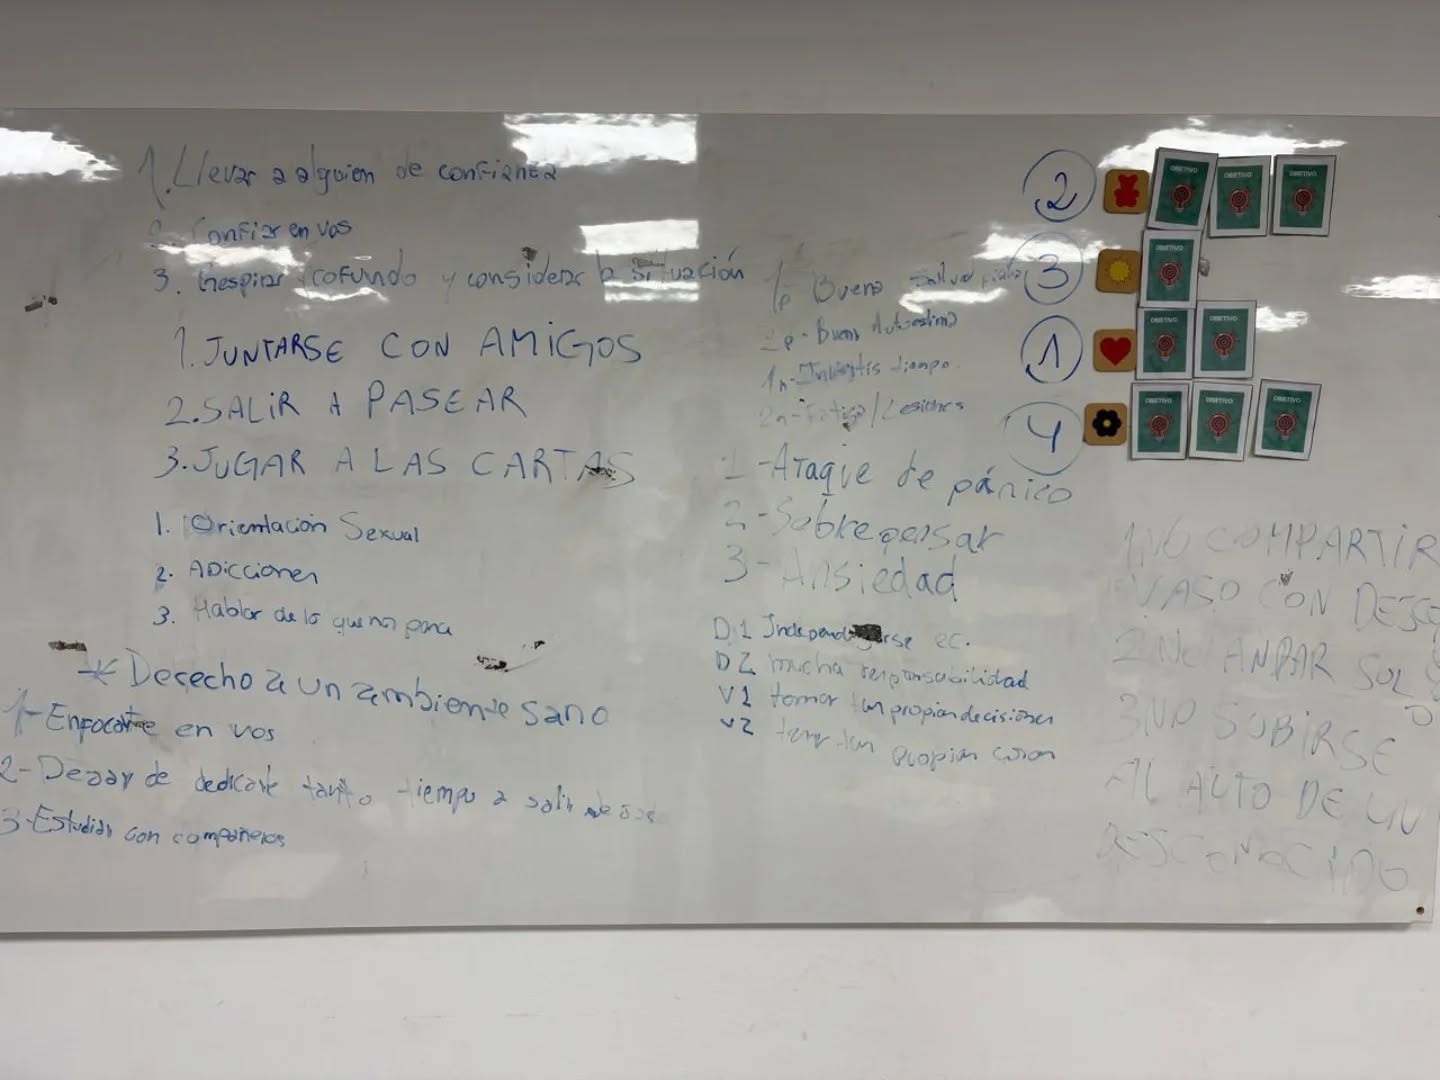 1. Llevar a alguien de confianza
2. Confiar en vos
3. Respirar profundo y considerar la situación
1. JUNTARSE CON AMIGOS
2. SALIR A PASEAR
3. JUGAR A LAS CARTAS
1. Orientación Sexual
2. ADicciones
3. Hablar de lo que nos pasa
* Derecho a un ambiente sano
1- Enfocarte en vos
2- Dejar de dedicarte tanto tiempo a salir
3- Estudiar con compañeros
1p Buena salud
2p- Buena Autoestima
1n- tiempo.
2n- Fatiga/Lesiones
1 - Ataque de pánico
2 - Sobrepensar
3 - Ansiedad
D.1 ec.
D2 mucha responsabilidad
V1 tomar tus propias decisiones
V2 tener tus propias cosas
2 OBJETIVO OBJETIVO OBJETIVO
3 OBJETIVO
1 OBJETIVO OBJETIVO
4 OBJETIVO OBJETIVO OBJETIVO
1. NO COMPARTIR
VASO CON
2. NO ANDAR
3. NO SUBIRSE
AL AUTO DE UN
DESCONOCIDO